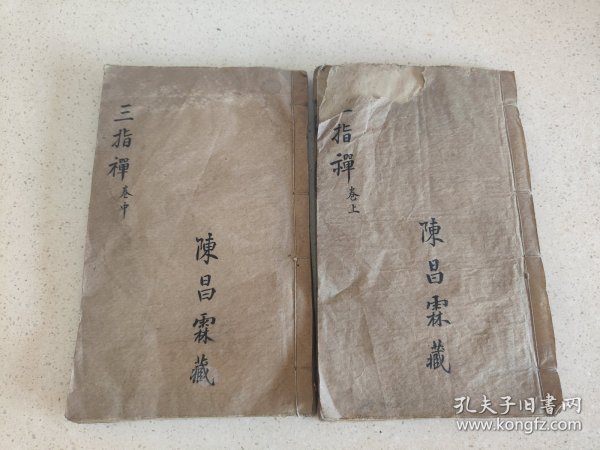 三指禪
卷中
陳昌霖藏
指禪
卷上
陳昌霖藏
孔夫子旧书网
www.kongfz.com